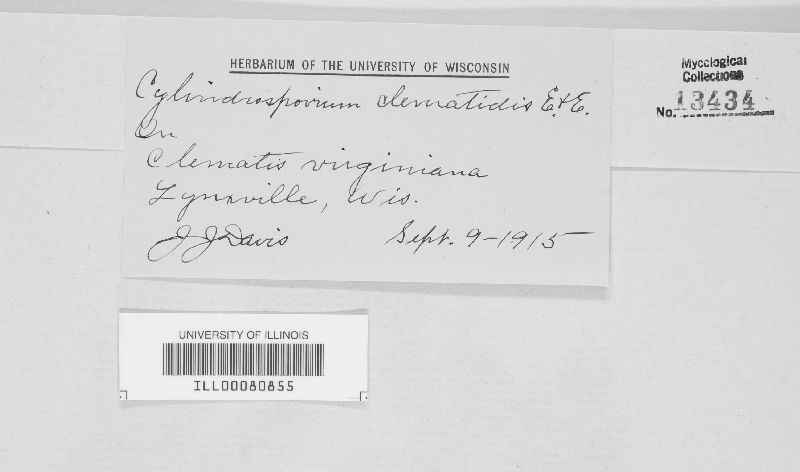 HERBARIUM OF THE UNIVERSITY OF WISCONSIN
Cylindrosporium clematidis E.&E.
On
Clematis virginiana
Lynxville, Wis.
J J Davis Sept. 9-1915
Mycological
Collections
No. 13434
UNIVERSITY OF ILLINOIS
ILL00080855